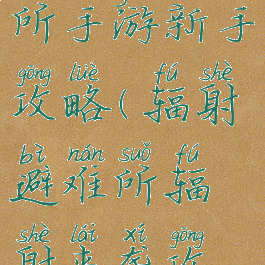 所手游新手
gōng lüè fú shè
攻略(辐射
bì nán suǒ fú
避难所辐
shè lái xí gōng
射来袭攻